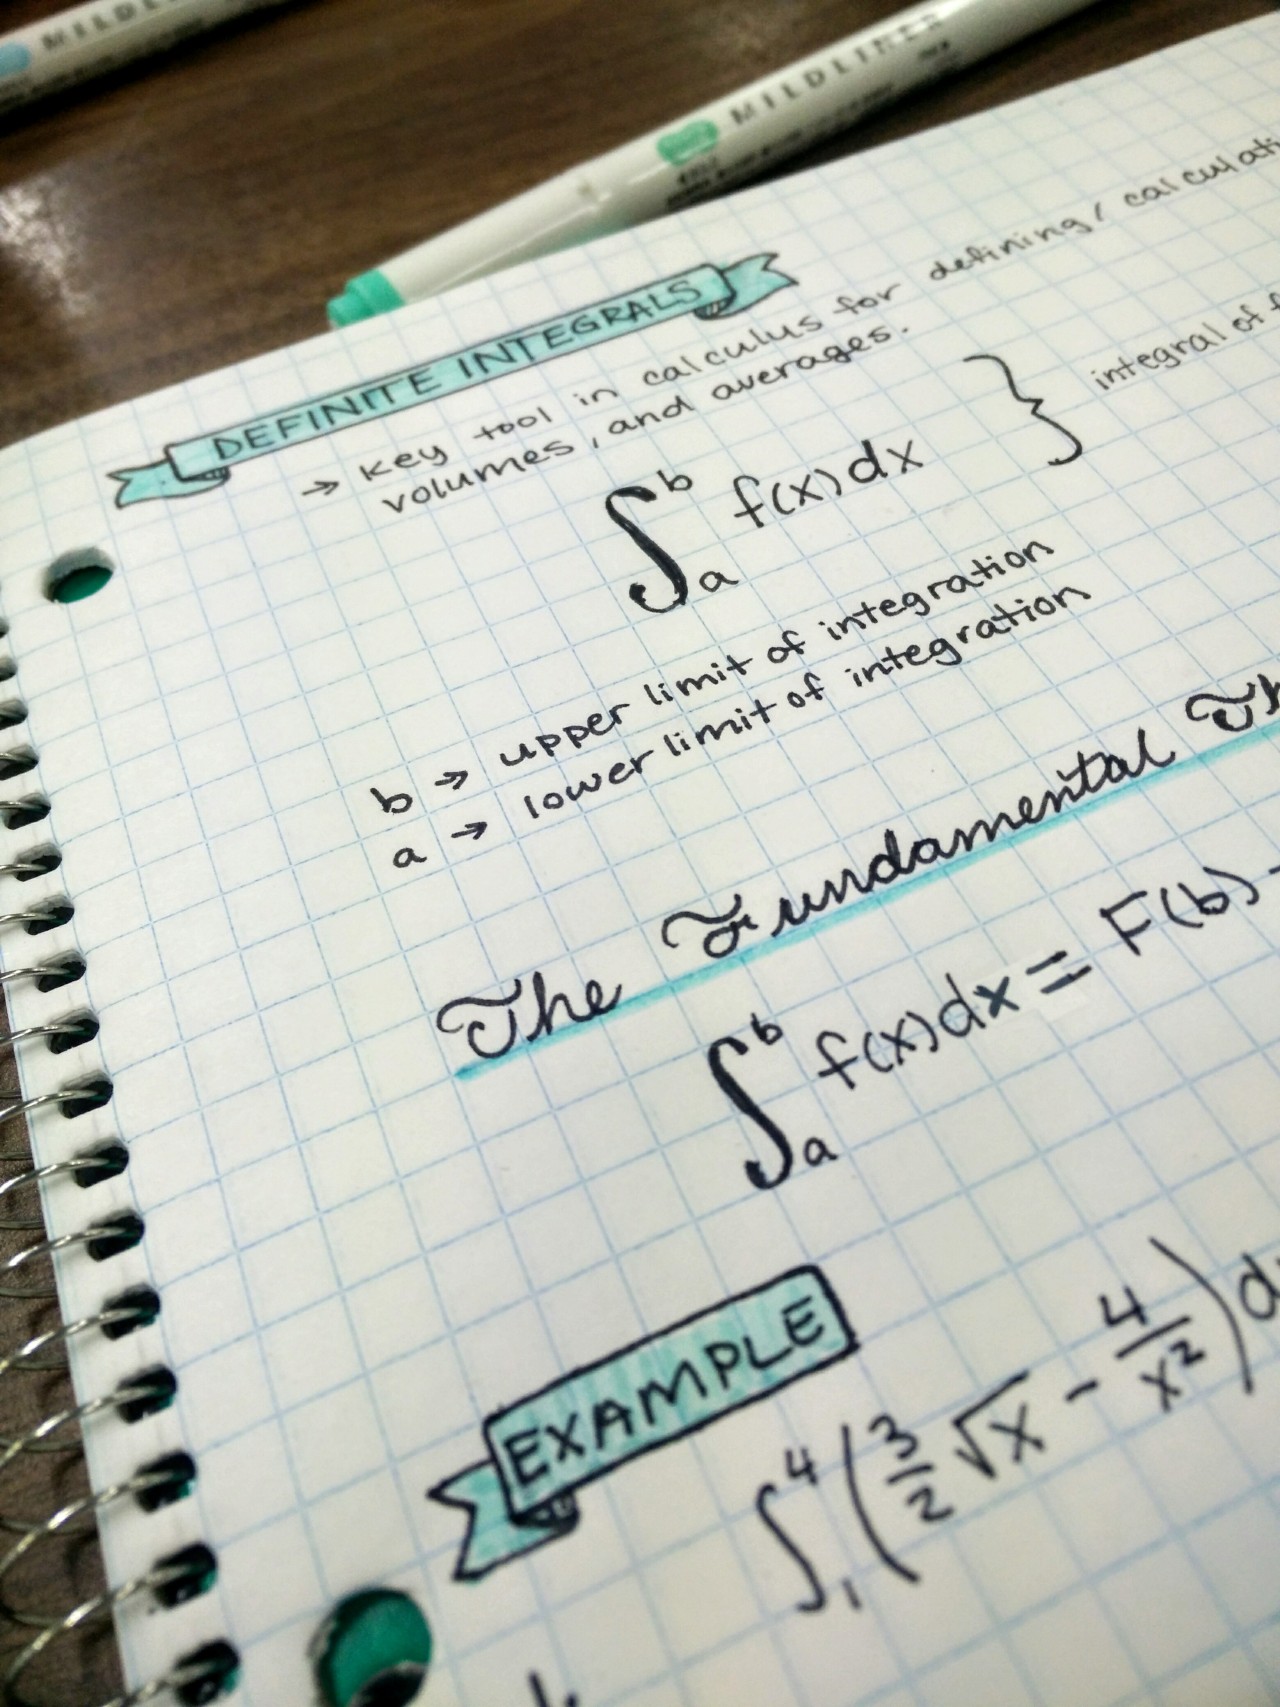 MILDL
MILDLINER
DEFINITE INTEGRALS
→ Key tool in calculus for defining/calculati
volumes, and averages.
∫_a^b f(x)dx } integral of f
b → upper limit of integration
a → lower limit of integration
The Fundamental Th
∫_a^b f(x)dx = F(b) -
EXAMPLE
∫_1^4 (3/2 √x - 4/x²)d